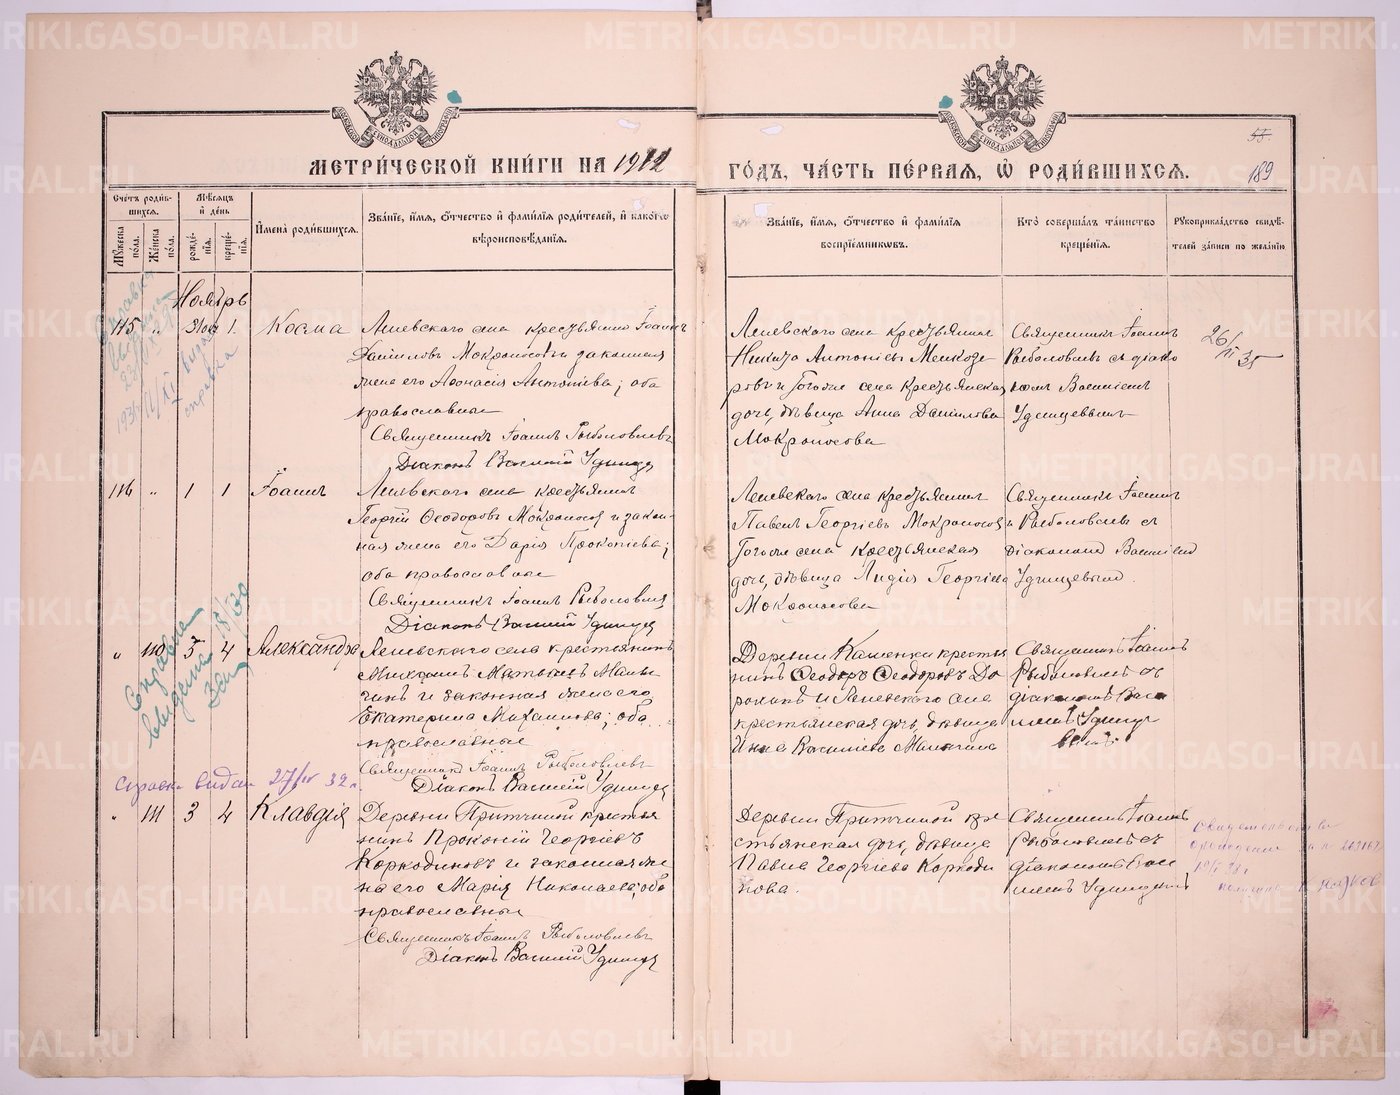 МЕТРИ́ЧЕСКОЙ КНИ́ГИ НА 1912
ГО́ДЪ, ЧА́СТЬ ПЕ́РВАЯ, Ѿ РОДИ́ВШИХСЯ.
189
Сче́тъ роди́в-
шихся.
Му́жеска по́ла.
Же́нска по́ла.
Мѣ́сяцъ и де́нь
рожде́-
нія.
креще́-
нія.
И́мена роди́вшихся.
Зва́ніе, и́мя, о́тчество и фами́лія роди́телей, и како́гѡ
вѣроисповѣ́данія.
Зва́ніе, и́мя, о́тчество и фами́лія
воспріе́мниковъ.
Кто̀ соверша́лъ та́инство
креще́нія.
Рукоприкла́дство свидѣ́-
телей за́писи по жела́нію.
Ноябрь
115 „ 31 окт 1. Косма
Леневскаго села крестьянинъ Іоаннъ
Данииловъ Мокроносовъ и законная
жена его Антоніева; оба
православные
Священникъ Іоаннъ Рыболовлевъ
Діаконъ Василій Удинцев
Леневскаго села крестьянинъ
Никита Антоніевъ
и того же села крестьянская
дочь, дѣвица Анна Даниилова
Мокроносова
Священникъ Іоаннъ
Рыболовлевъ съ діако-
номъ Василіемъ
Удинцевымъ
26/III 35
116 „ 1 1 Іоаннъ
Леневскаго села крестьянинъ
Георгій Ѳеодоровъ Мокроносов и закон-
ная жена его Дарія Прокопіева;
оба православные
Священникъ Іоаннъ Рыболовлев
Діаконъ Василій Удинцев
Леневскаго села крестьянинъ
Павелъ Георгіевъ Мокроносов
и того же села крестьянская
дочь, дѣвица Лидія Георгіева
Мокроносова
Священникъ Іоаннъ
Рыболовлевъ съ
діакономъ Василіем
Удинцевымъ.
„ 110 3 4 Александра
Леневскаго села крестьянинъ
Михаилъ Матѳіевъ Мань-
и законная жена его
Екатерина Михаилова; оба
православные
Священникъ Іоаннъ Рыболовлевъ
Діаконъ Василій Удинцев
Деревни Каменки крестья
нинъ Ѳеодоръ Ѳеодоровъ До
рохинъ и Леневскаго села
крестьянская дочь, дѣвица
Анна Василіева
Священникъ Іоаннъ
Рыболовлевъ съ
діакономъ Васи
ліемъ Удинце
вымъ
Справка
выдана
18/
Справка выдан 27/IV 32 г.
„ 111 3 4 Клавдія
Деревни Притчиной крестья
нинъ Прокопій Георгіевъ
Коркодиновъ и законная же
на его Марія Николаева; оба
православные
Священникъ Іоаннъ Рыболовлевъ
Діаконъ Василій Удинцев
Деревни Притчиной кре
стьянская дочь, дѣвица
Павла Георгіева Коркоди
нова.
Священникъ Іоаннъ
Рыболовлевъ съ
діакономъ Васи
ліемъ Удинцевымъ
METRIKI.GASO-URAL.RU